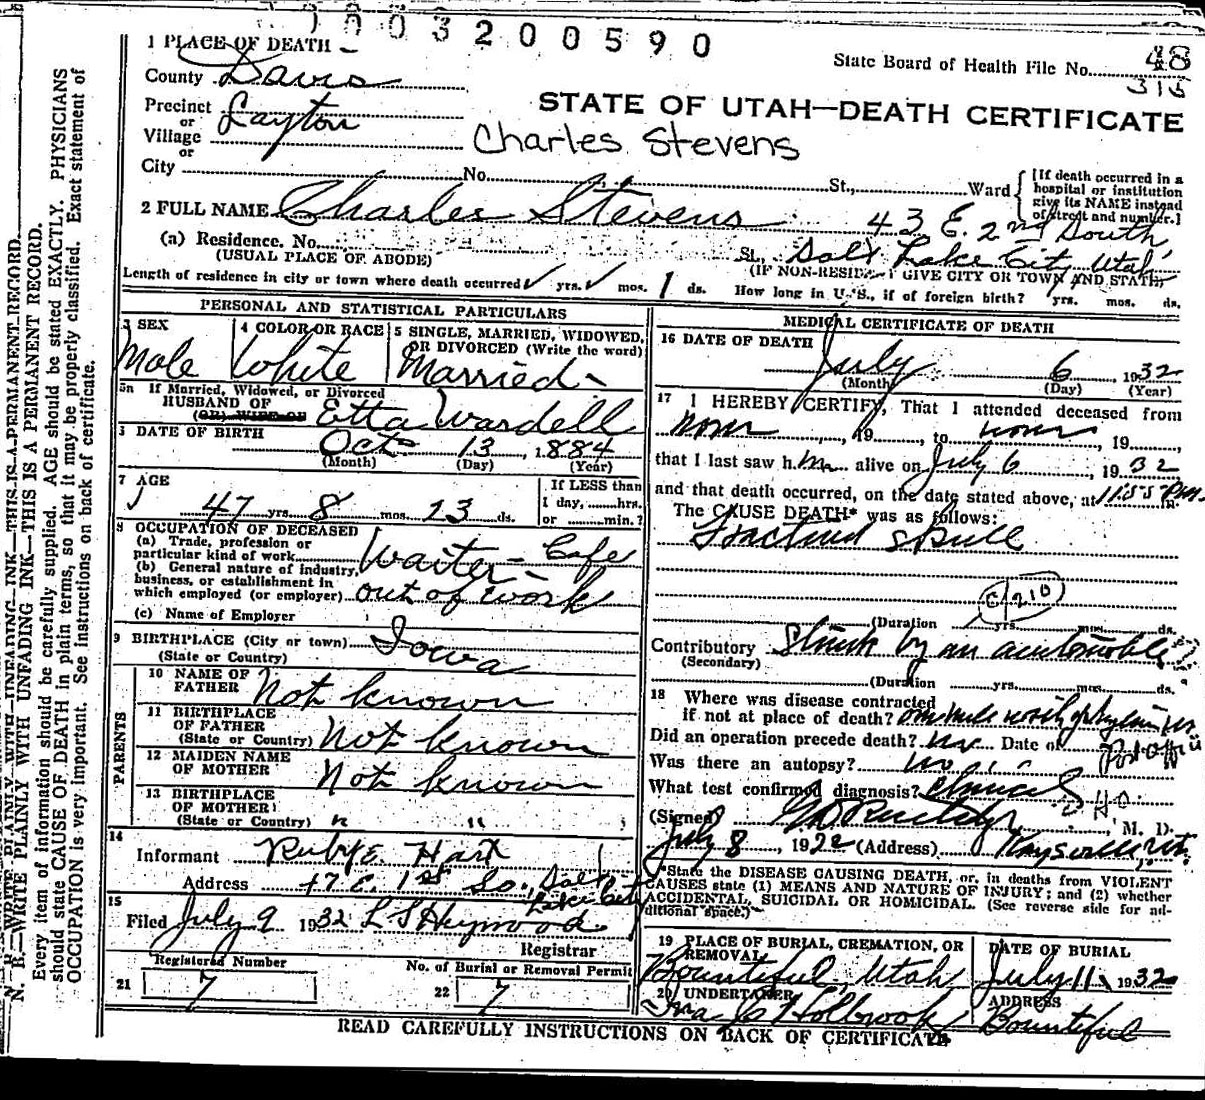 0003200590
1 PLACE OF DEATH
State Board of Health File No. 48
315
County Davis
STATE OF UTAH—DEATH CERTIFICATE
Precinct or Layton
Village or
Charles Stevens
City No. St., Ward
[If death occurred in a hospital or institution give its NAME instead of street and number.]
2 FULL NAME Charles Stevens
43 E. 2nd South
(a) Residence. No. St., Salt Lake City, Utah
(USUAL PLACE OF ABODE) (IF NON-RESIDENT GIVE CITY OR TOWN AND STATE)
Length of residence in city or town where death occurred yrs. mos. 1 ds. How long in U. S., if of foreign birth? yrs. mos. ds.
PERSONAL AND STATISTICAL PARTICULARS
3 SEX Male
4 COLOR OR RACE White
5 SINGLE, MARRIED, WIDOWED, OR DIVORCED (Write the word) Married
5a If Married, Widowed, or Divorced
HUSBAND OF Etta Wardell
(OR) WIFE OF
DATE OF BIRTH Oct 13, 1884
(Month) (Day) (Year)
7 AGE 47 yrs. 8 mos. 23 ds.
If LESS than 1 day, hrs. or min.?
8 OCCUPATION OF DECEASED
(a) Trade, profession or particular kind of work Waiter - Cafe
(b) General nature of industry, business, or establishment in which employed (or employer) out of work
(c) Name of Employer
9 BIRTHPLACE (City or town) Iowa
(State or Country)
PARENTS
10 NAME OF FATHER Not known
11 BIRTHPLACE OF FATHER (State or Country) Not known
12 MAIDEN NAME OF MOTHER Not known
13 BIRTHPLACE OF MOTHER (State or Country) " "
14
Informant Ruby E. Hart
Address 47 E. 1st So., Salt Lake City
15
Filed July 9 1932 L S Heywood
Registrar
Registered Number
21 7
No. of Burial or Removal Permit
22 7
MEDICAL CERTIFICATE OF DEATH
16 DATE OF DEATH
July 6, 1932
(Month) (Day) (Year)
17 I HEREBY CERTIFY, That I attended deceased from
, 19 , to , 19
that I last saw h im alive on July 6 1932
and that death occurred, on the date stated above, at 11:55 P.m.
The CAUSE DEATH* was as follows:
Fractured Skull
C 210
(Duration yrs. mos. ds.
Contributory Struck by an automobile
(Secondary)
(Duration yrs. mos. ds.
18 Where was disease contracted
if not at place of death? one mile north of Layton
Post Office
Did an operation precede death? no Date of
Was there an autopsy? no
What test confirmed diagnosis? Clinical
(Signed) , M. D.
July 8, 1932 (Address) Kaysville, Ut.
*State the DISEASE CAUSING DEATH, or, in deaths from VIOLENT
CAUSES state (1) MEANS AND NATURE OF INJURY; and (2) whether
ACCIDENTAL, SUICIDAL OR HOMICIDAL. (See reverse side for ad-
ditional space.)
19 PLACE OF BURIAL, CREMATION, OR REMOVAL
Bountiful, Utah
DATE OF BURIAL
July 11, 1932
20 UNDERTAKER
Ira C Holbrook
ADDRESS
Bountiful
READ CAREFULLY INSTRUCTIONS ON BACK OF CERTIFICATE
N. B.—WRITE PLAINLY WITH UNFADING INK—THIS IS A PERMANENT RECORD.
Every item of information should be carefully supplied. AGE should be stated EXACTLY. PHYSICIANS
should state CAUSE OF DEATH in plain terms, so that it may be properly classified. Exact statement of
OCCUPATION is very important. See instructions on back of certificate.